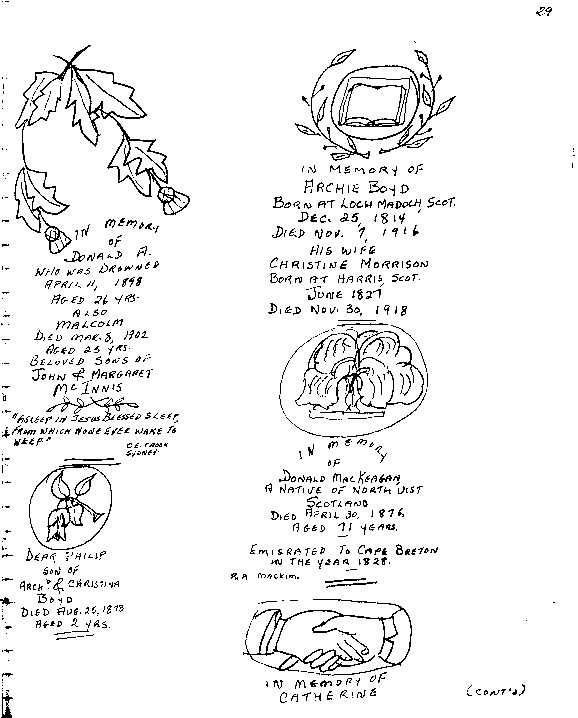 29
IN MEMORY
OF
DONALD A.
WHO WAS DROWNED
APRIL 11, 1898
AGED 26 YRS.
ALSO
MALCOLM
DIED MAR. 8, 1902
AGED 25 YRS.
BELOVED SONS OF
JOHN & MARGARET
McINNIS
"ASLEEP IN JESUS BLESSED SLEEP,
FROM WHICH NONE EVER WAKE TO
WEEP."
SYDNEY
DEAR PHILIP
SON OF
ARCHD & CHRISTINA
BOYD
DIED AUG. 25, 1873
AGED 2 YRS.
IN MEMORY OF
ARCHIE BOYD
BORN AT LOCH MADOCH, SCOT.
DEC. 25, 1814
DIED NOV. 9, 1916
HIS WIFE
CHRISTINE MORRISON
BORN AT HARRIS, SCOT.
JUNE 1827
DIED NOV. 30, 1918
IN MEMORY
OF
DONALD MACKEAGAN
A NATIVE OF NORTH UIST
SCOTLAND
DIED APRIL 30, 1876
AGED 71 YEARS.
EMIGRATED TO CAPE BRETON
IN THE YEAR 1828.
MACKIM.
IN MEMORY OF
CATHERINE
(CONT'D)